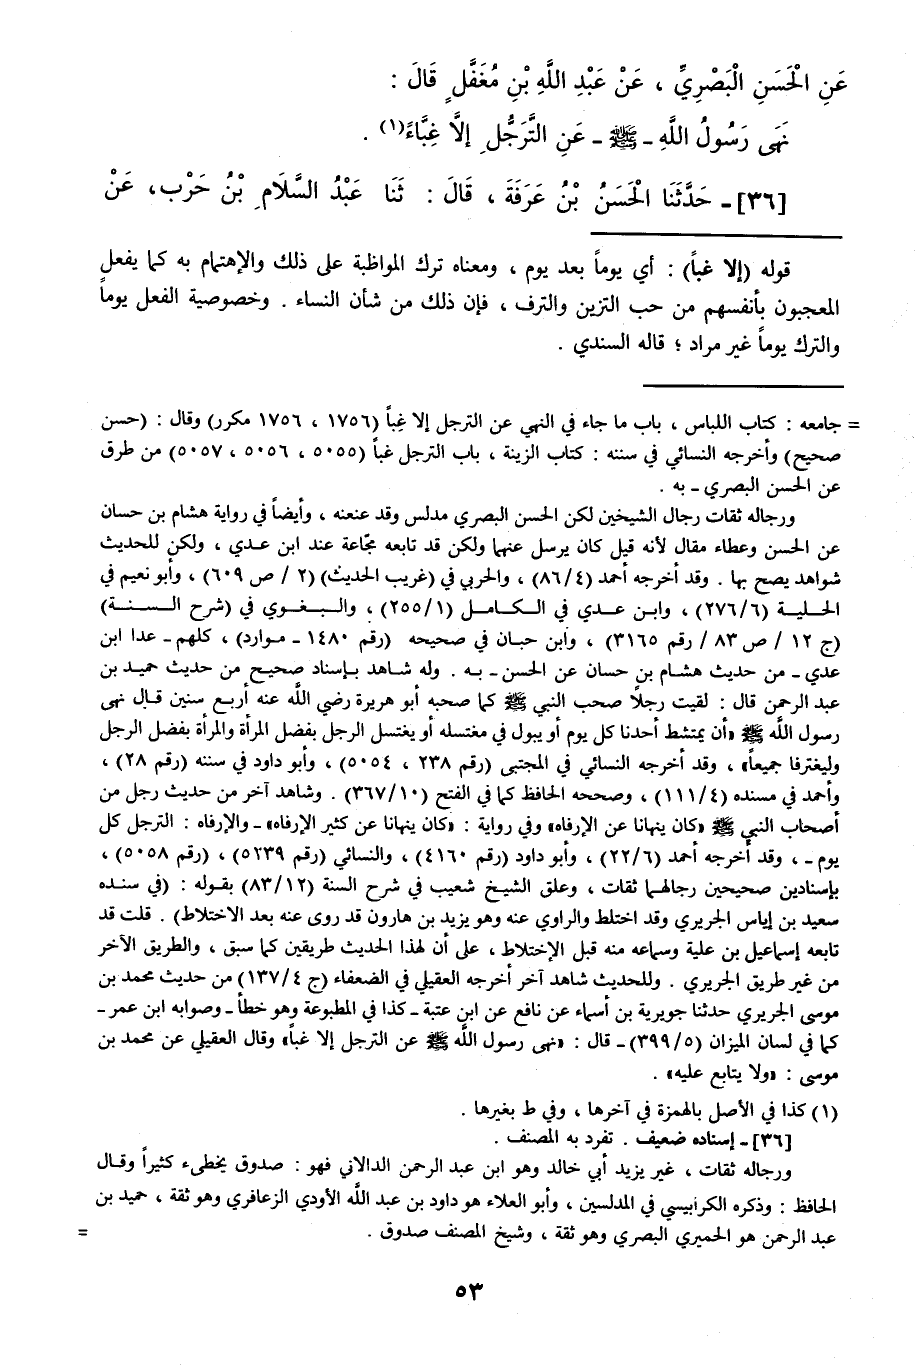 عَنِ الْحَسَنِ الْبَصْرِيِّ ، عَنْ عَبْدِ اللَّهِ بْنِ مُغَفَّلٍ قَالَ :
نَهَى رَسُولُ اللَّهِ ـ ﷺ ـ عَنِ التَّرَجُّلِ إِلَّا غِبَّاءً(١) .
[٣٦] ـ حَدَّثَنَا الْحَسَنُ بْنُ عَرَفَةَ ، قَالَ : ثَنَا عَبْدُ السَّلَامِ بْنُ حَرْبٍ ، عَنْ
قوله (إلا غباً) : أي يوماً بعد يوم ، ومعناه ترك المواظبة على ذلك والإهتمام به كما يفعل
المعجبون بأنفسهم من حب التزين والترف ، فإن ذلك من شأن النساء . وخصوصية الفعل يوماً
والترك يوماً غير مراد ؛ قاله السندي .
= جامعه : كتاب اللباس ، باب ما جاء في النهي عن الترجل إلا غِباً (١٧٥٦ ، ١٧٥٦ مكرر) وقال : (حسن
صحيح) وأخرجه النسائي في سننه : كتاب الزينة ، باب الترجل غباً (٥٠٥٥ ، ٥٠٥٦ ، ٥٠٥٧) من طرق
عن الحسن البصري ـ به .
ورجاله ثقات رجال الشيخين لكن الحسن البصري مدلس وقد عنعنه ، وأيضاً في رواية هشام بن حسان
عن الحسن وعطاء مقال لأنه قيل كان يرسل عنهما ولكن قد تابعه مجّاعة عند ابن عدي ، ولكن للحديث
شواهد يصح بها . وقد أخرجه أحمد (٨٦/٤) ، والحربي في (غريب الحديث) (٢ / ص ٦٠٩) ، وأبو نعيم في
الحلية (٢٧٦/٦) ، وابن عدي في الكامل (٢٥٥/١) ، والبغوي في (شرح السنة)
(ج ١٢ / ص ٨٣ / رقم ٣١٦٥) ، وابن حبان في صحيحه (رقم ١٤٨٠ ـ موارد) ، كلهم ـ عدا ابن
عدي ـ من حديث هشام بن حسان عن الحسن ـ به . وله شاهد بإسناد صحيح من حديث حميد بن
عبد الرحمن قال : لقيت رجلاً صحب النبي ﷺ كما صحبه أبو هريرة رضي الله عنه أربع سنين قال نهى
رسول الله ﷺ «أن يمتشط أحدنا كل يوم أو يبول في مغتسله أو يغتسل الرجل بفضل المرأة والمرأة بفضل الرجل
وليغترفا جميعاً» ، وقد أخرجه النسائي في المجتبى (رقم ٢٣٨ ، ٥٠٥٤) ، وأبو داود في سننه (رقم ٢٨) ،
وأحمد في مسنده (١١١/٤) ، وصححه الحافظ كما في الفتح (٣٦٧/١٠) . وشاهد آخر من حديث رجل من
أصحاب النبي ﷺ «كان ينهانا عن الإرفاه» وفي رواية : «كان ينهانا عن كثير الإرفاه» ـ والإرفاه : الترجل كل
يوم ـ ، وقد أخرجه أحمد (٢٢/٦) ، وأبو داود (رقم ٤١٦٠) ، والنسائي (رقم ٥٢٣٩) ، (رقم ٥٠٥٨) ،
بإسنادين صحيحين رجالهما ثقات ، وعلق الشيخ شعيب في شرح السنة (٨٣/١٢) بقوله : (في سنده
سعيد بن إياس الجريري وقد اختلط والراوي عنه وهو يزيد بن هارون قد روى عنه بعد الاختلاط) . قلت قد
تابعه إسماعيل بن علية وسماعه منه قبل الإختلاط ، على أن لهذا الحديث طريقين كما سبق ، والطريق الآخر
من غير طريق الجريري . وللحديث شاهد آخر أخرجه العقيلي في الضعفاء (ج ١٣٧/٤) من حديث محمد بن
موسى الجريري حدثنا جويرية بن أسماء عن نافع عن ابن عتبة ـ كذا في المطبوعة وهو خطأ ـ وصوابه ابن عمر ـ
كما في لسان الميزان (٣٩٩/٥) ـ قال : «نهى رسول الله ﷺ عن الترجل إلا غباً» وقال العقيلي عن محمد بن
موسى : «ولا يتابع عليه» .
(١) كذا في الأصل بالهمزة في آخرها ، وفي ط بغيرها .
[٣٦] ـ إسناده ضعيف . تفرد به المصنف .
ورجاله ثقات ، غير يزيد أبي خالد وهو ابن عبد الرحمن الدالاني فهو : صدوق يخطىء كثيراً وقال
الحافظ : وذكره الكرابيسي في المدلسين ، وأبو العلاء هو داود بن عبد الله الأودي الزعافري وهو ثقة ، حميد بن
عبد الرحمن هو الحميري البصري وهو ثقة ، وشيخ المصنف صدوق . =
٥٣